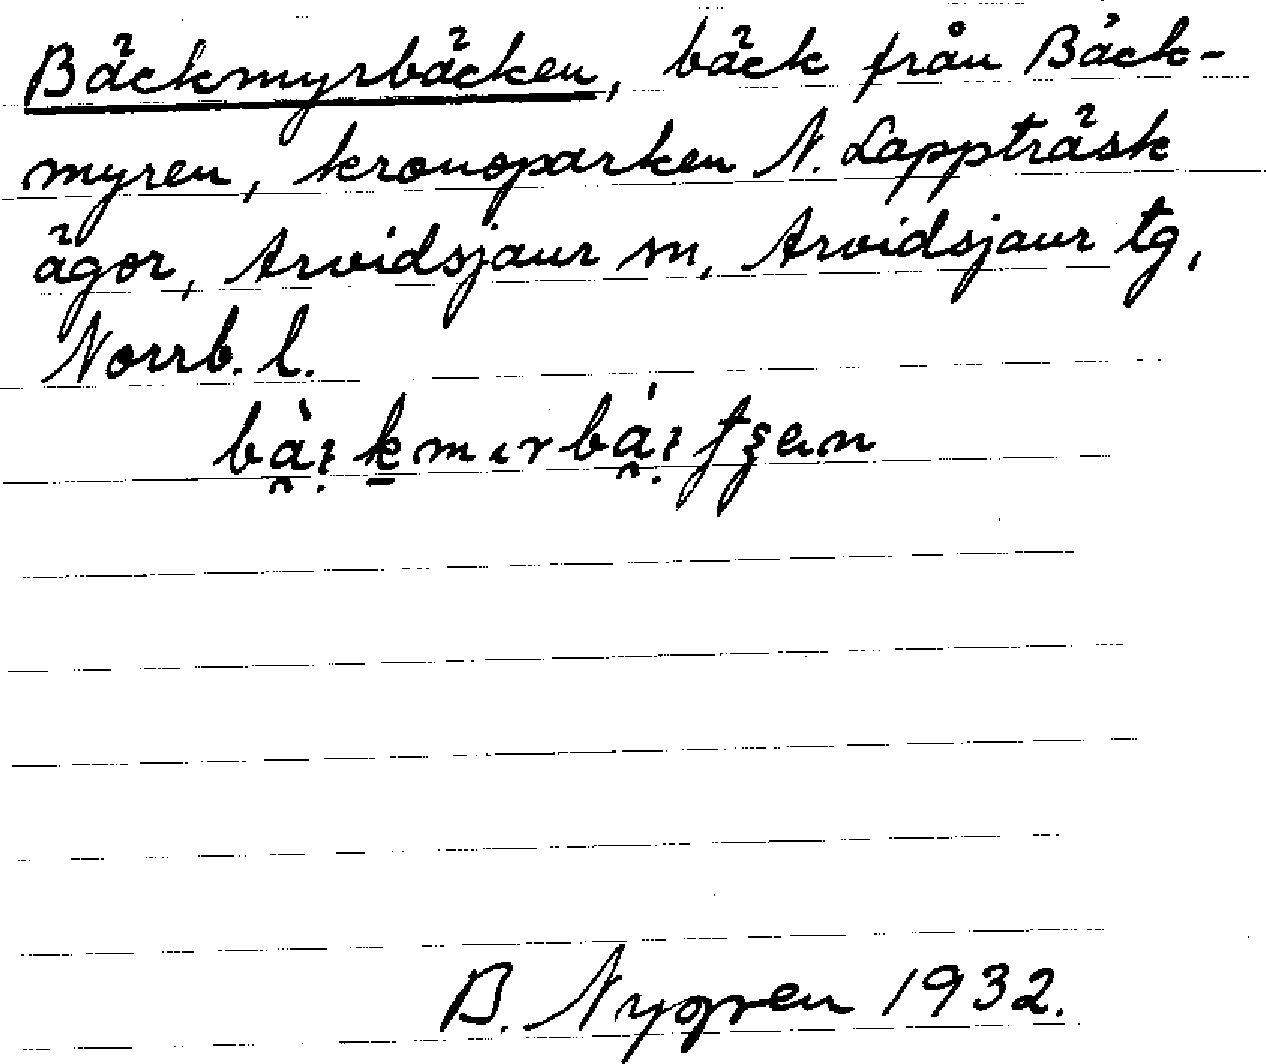 Bäckmyrbäcken, bäck från Bäck-
myren, kronoparken N. Lappträsk
ägor, Arvidsjaur sn, Arvidsjaur tg,
Norrb. l.
B. Nygren 1932.